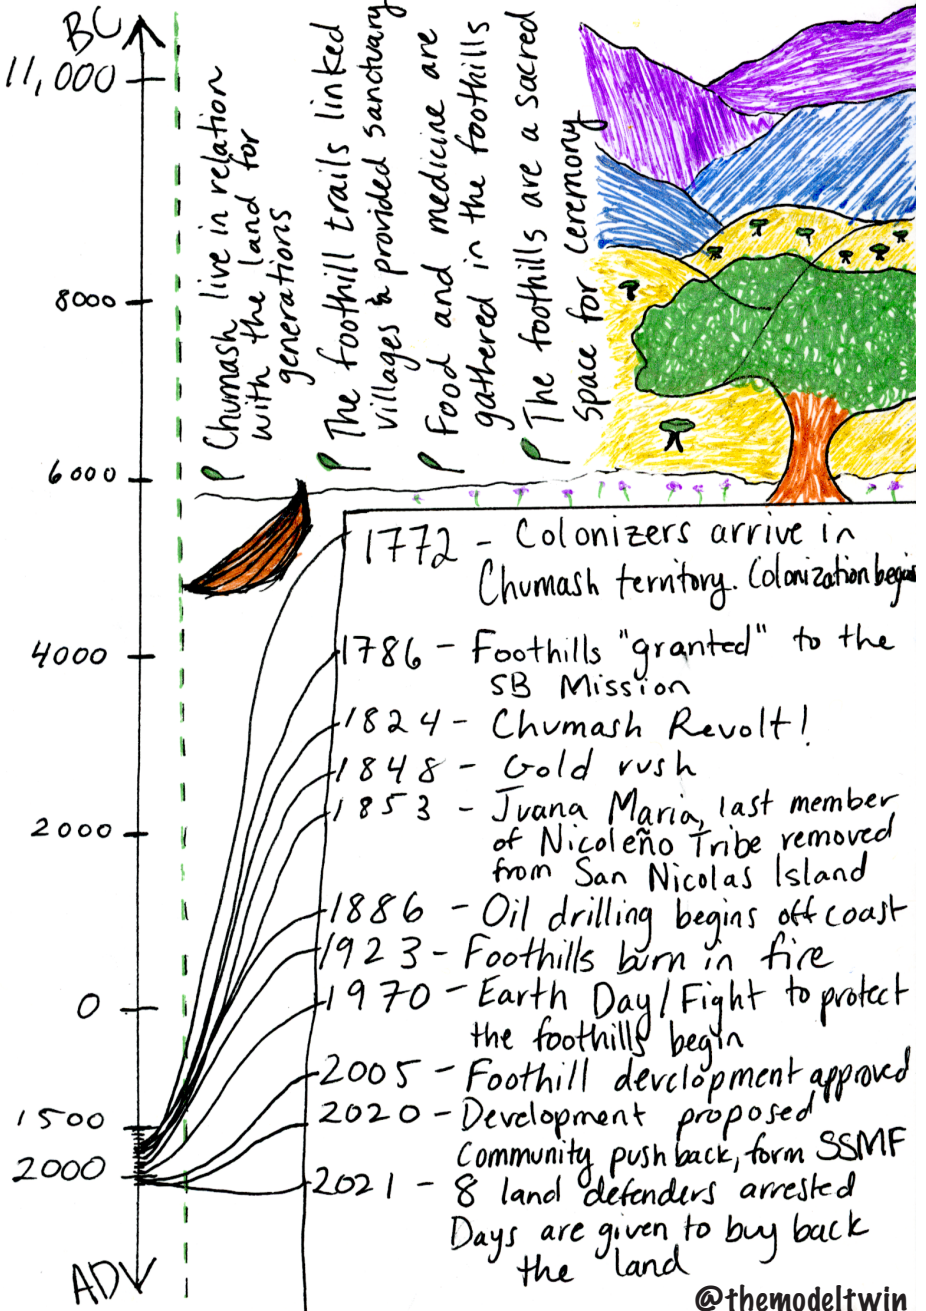 BC
11,000
8000
6000
4000
2000
0
1500
2000
AD
Chumash live in relation
with the land for
generations
The foothill trails linked
villages & provided sanctuary
Food and medicine are
gathered in the foothills
The foothills are a sacred
space for ceremony
1772 - Colonizers arrive in
Chumash territory. Colonization begins
1786 - Foothills "granted" to the
SB Mission
1824 - Chumash Revolt!
1848 - Gold rush
1853 - Juana Maria, last member
of Nicoleño Tribe removed
from San Nicolas Island
1886 - Oil drilling begins off coast
1923 - Foothills burn in fire
1970 - Earth Day/Fight to protect
the foothills begin
2005 - Foothill development approved
2020 - Development proposed
Community pushback, form SSMF
2021 - 8 land defenders arrested
Days are given to buy back
the land
@themodeltwin